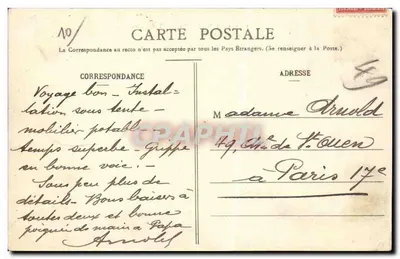 10/
CARTE POSTALE
La Correspondance au recto n'est pas acceptée par tous les Pays Etrangers. (Se renseigner à la Poste.)
CORRESPONDANCE
Voyage bon - Instal=
lation sous tente -
mobilier potable -
temps superbe - Grippe
en bonne voie. -
Sous peu plus de
détails - Bons baisers à
toutes deux et bonne
poignée de main à Papa
Arnold
ADRESSE
49
Madame Arnold
49, Rue de St Ouen
à Paris 17e